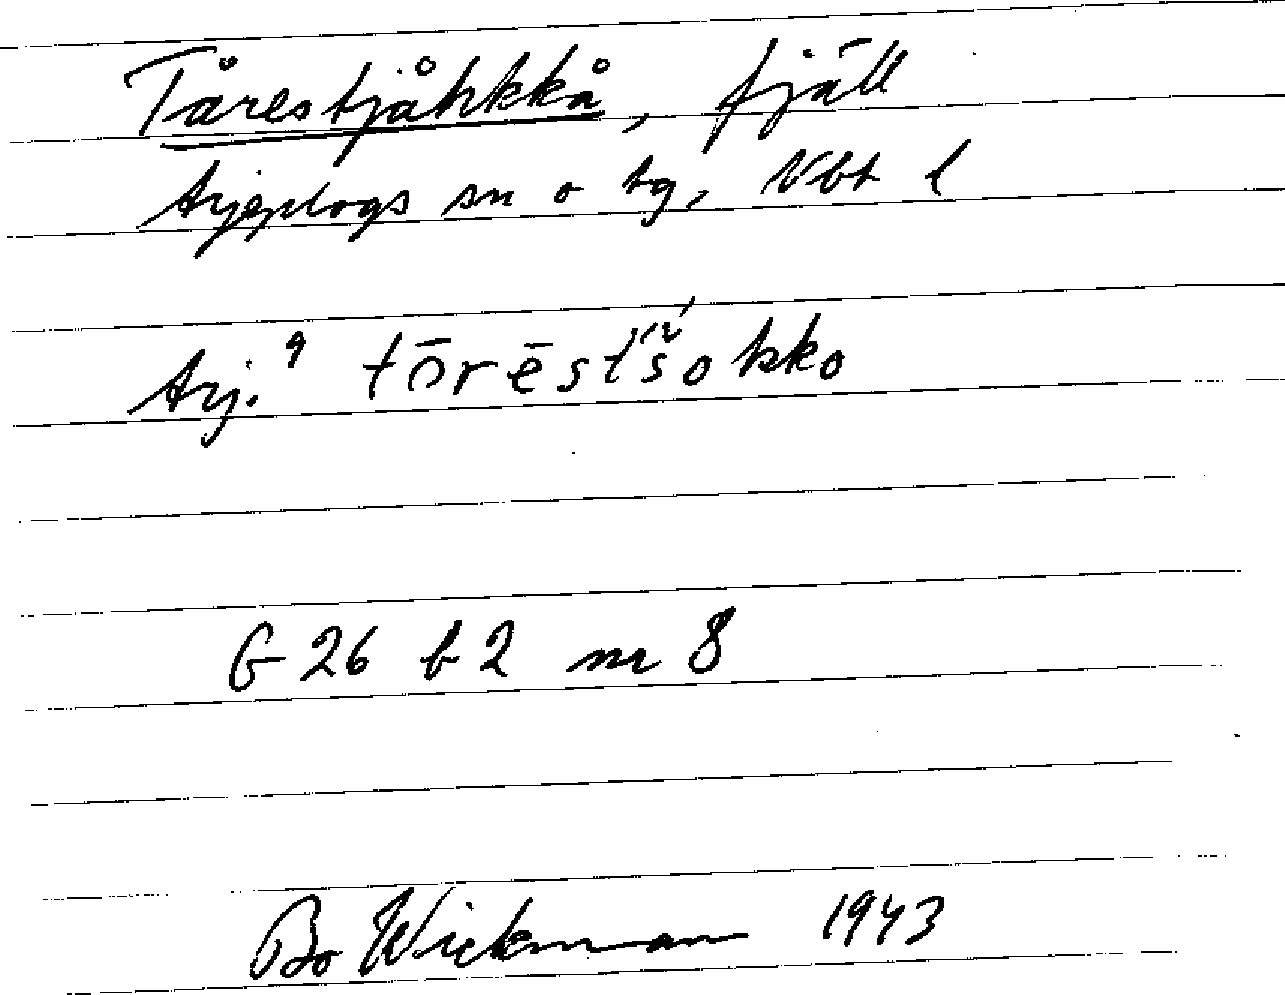 Tårestjåhkkå, fjäll
Arjeplogs sn o tg, Nbt l
Arj. 9 tōrēst́š́okko
G 26 b 2 nr 8
Bo Wickman 1943